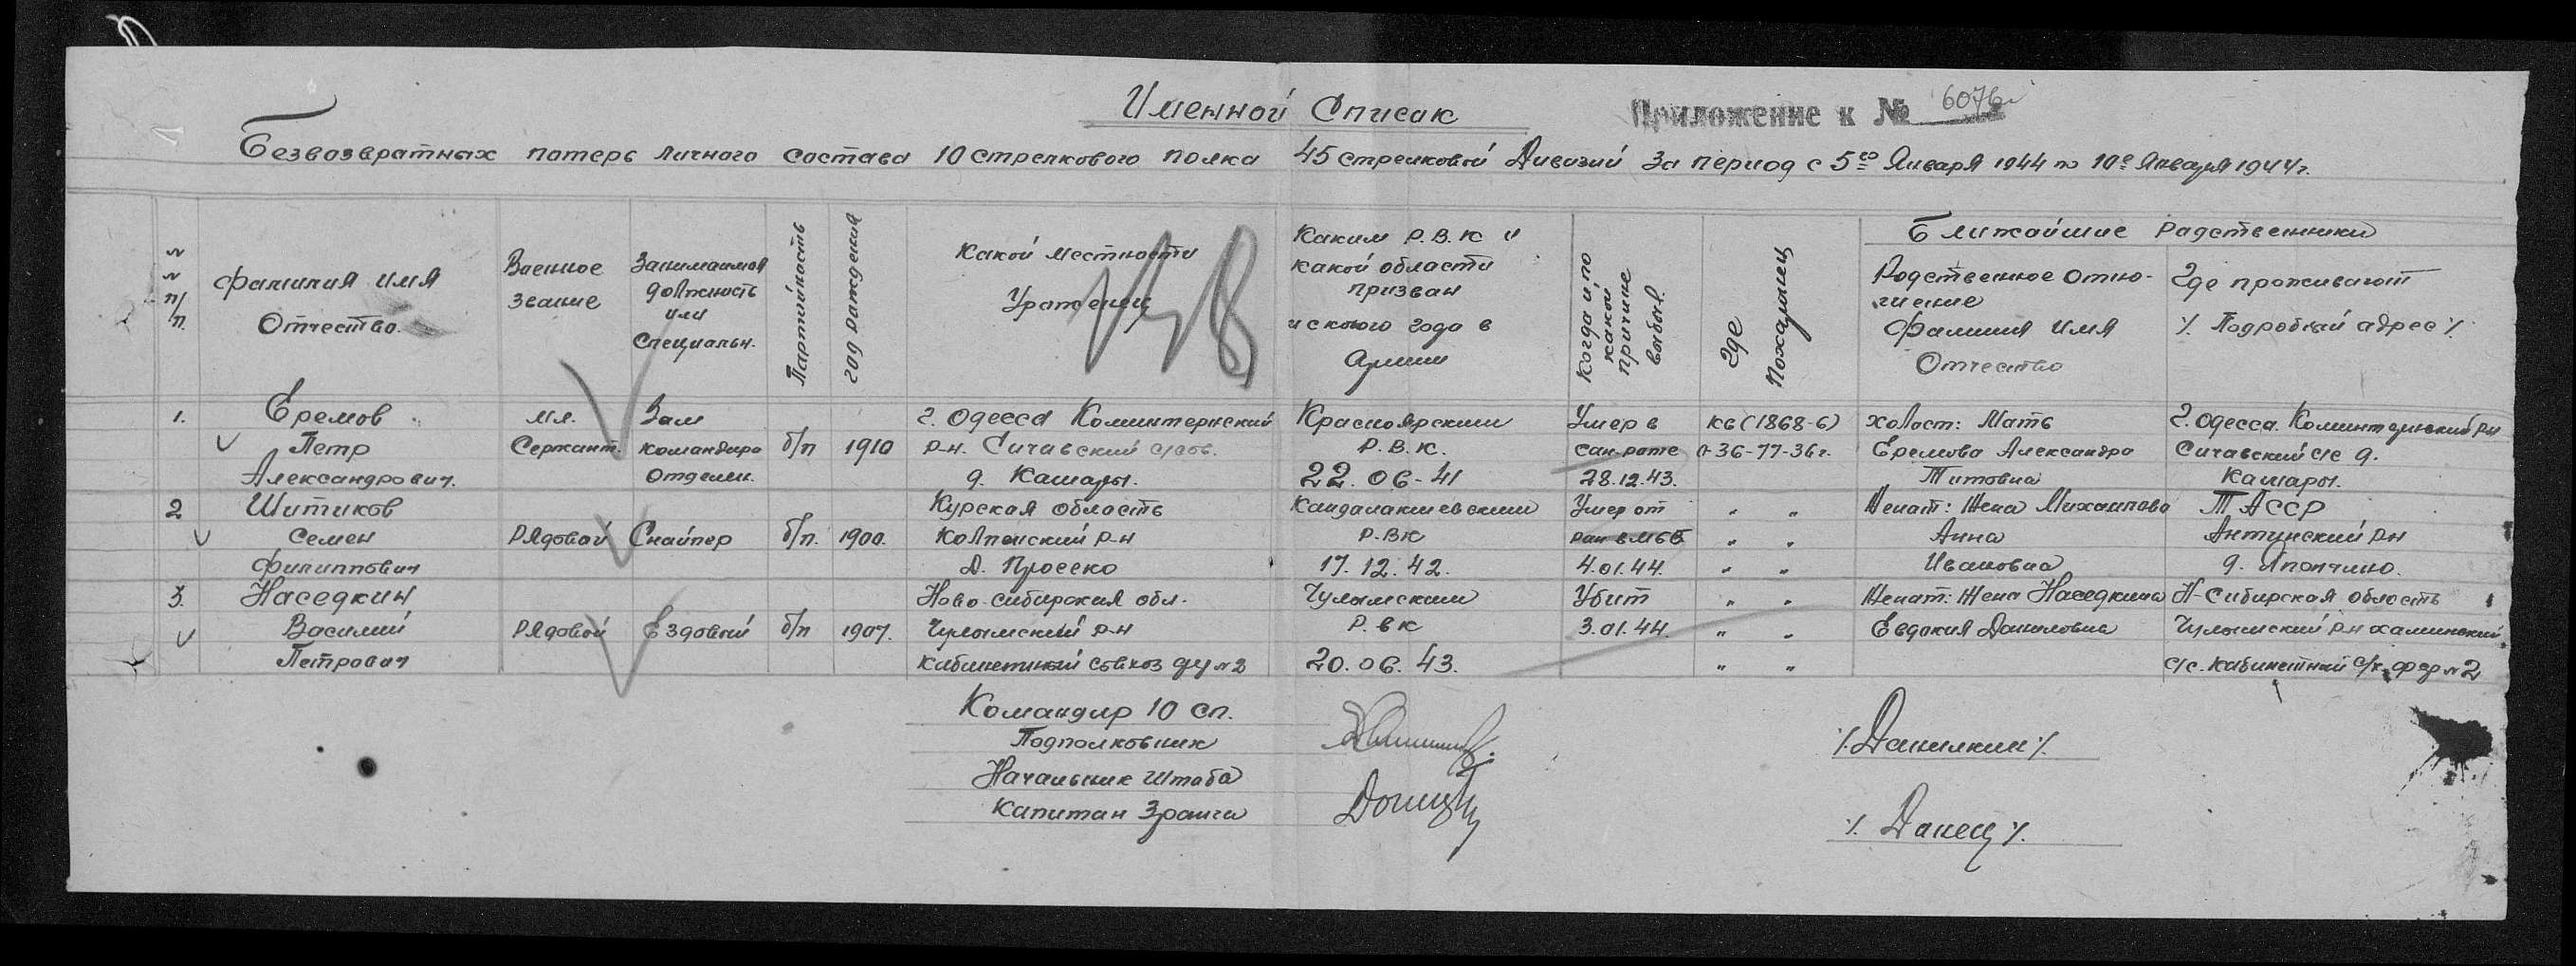 Именной Список
Приложение к № 6076
Безвозвратных потерь личного состава 10 стрелкового полка 45 стрелковой Дивизий за период с 5го Января 1944 по 10е Января 1944 г.
№ № п/п. Фамилия имя Отчество. Военное звание Занимаимая должность или Специальн. Партийность год рождения Какой местности Уроженец Каким Р.В.К и какой области призван и с какого года в Армии Когда и по какой причине выбыл Где Похоранен Ближайшие Радственники
Родственное отношение Фамилия Имя Отчество Где проживают /. Подробный адрес /.
1. Еремов мл. Зам г. Одесса Коминтернский Красноярским Умер в кв (1868-б) холост: Мать г. Одесса. Коминтерновский рн
Петр Сержант. командира б/п 1910 р-н. Сичавский с/сов. Р.В.К. сан.роте 0-36-77-36 г. Еремова Александра Сичавский с/с д.
Александрович. Отделен. д. Кашары. 22.06-41 28.12.43. Титовна Кашары.
2 Шитиков Курская область Кандалакшевским Умер от " " Женат: Жена Михайлова ТАССР
Семен Рядовой Снайпер б/п. 1900. Колпенский р-н Р.ВК ран в МСБ " " Анна Актинский р-н
Филиппович Д. Просеко 17.12.42. 4.01.44. " " Ивановна д. Япончино.
3. Наседкин Ново-Сибирская обл. Чулымским Убит " " Женат: Жена Наседкина Н-Сибирская область
Василий Рядовой Ездовый б/п 1907. Чулымский р-н Р.ВК 3.01.44. " " Евдокия Даниловна Чулымский р-н
Петрович Кабинетный совхоз №2 20.06.43. " " с/с. Кабинетный с/х. фер №2
Командир 10 сп.
Подполковник /. Данилкин /.
Начальник Штаба
Капитан /. Данец /.